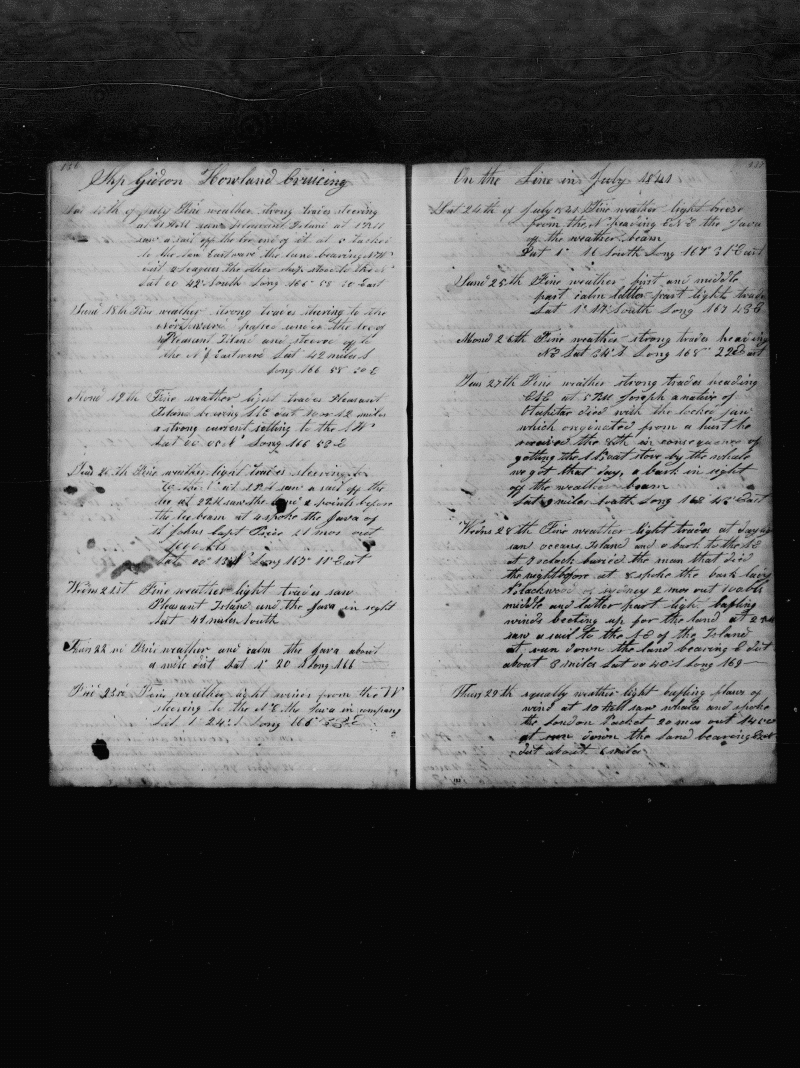 126
Ship Gideon Howland cruising
Sat 17th of July Fine weather strong trades steering
at 1 PM
saw a sail off the lee end of it at 5 tacked
to the Eastward the land bearing
dist 2 leagues the other ship stood to the
Lat 00 42 South Long 166 58 30 East
Sund 18th Fine weather strong trades steering to the
Northward passed under the lee of
Pleasant Island and steered off to
the N Eastward Lat 42 miles S
Long 166 58 30 E
Mond 19th Fine weather light trades Pleasant
Island bearing dist 10 or 12 miles
a strong current setting to the
Lat 00 05 Long 166 53 E
Tues 20th Fine weather light trades steering to
at 2 PM saw a sail off the
lee at 2 PM saw the land 2 points before
the lee beam at 4 spoke the Java of
St Johns Capt mos out
bbls
Lat 00 Long 167 11 East
Weens 21st Fine weather light trades saw
Pleasant Island and the Java in sight
Lat 41 miles South
Thurs 22nd Fine weather and calm the Java about
a mile dist Lat 1° 20 S Long 166
Frid 23rd Fine weather light winds from the W
steering to the N E the Java in company
Lat 1° 24 S Long 166 E
On the Line in July 1841
Sat 24th of July 1841 Fine weather light breeze
from the N heading the Java
off the weather beam
Lat 1° 16 South Long 167 31 East
Sund 25th Fine weather first and middle
part calm latter part light trades
Lat 1° 17 South Long 167 48 E
Mond 26th Fine weather strong trades heading
NE Lat 34 S Long 168° 22 East
Tues 27th Fine weather strong trades heading
ESE at 5 PM Joseph a native of
died with the locked jaw
which originated from a hurt he
received the 8th in consequence of
getting the boat stove by the whale
we got that day, a bark in sight
off the weather beam
Lat 9 miles South Long 168 45 East
Weens 28th Fine weather light trades at daylight
saw oceans Island and a bark to the SE
at 7 oclock buried the man that died
the night before at 8 spoke the bark Lady
Blackwood of Sydney 2 mos out 100 bbls
middle and latter part light baffling
winds beating up for the land at 2 PM
saw a sail to the NE of the Island
at ran down the land bearing E dist
about 8 miles Lat 00 40 S Long 169
Thurs 29th squally weather light baffling flaws of
wind at 10 AM saw whales and spoke
the London Packet 20 mos out 1400
at run down the land bearing East
dist about 6 miles